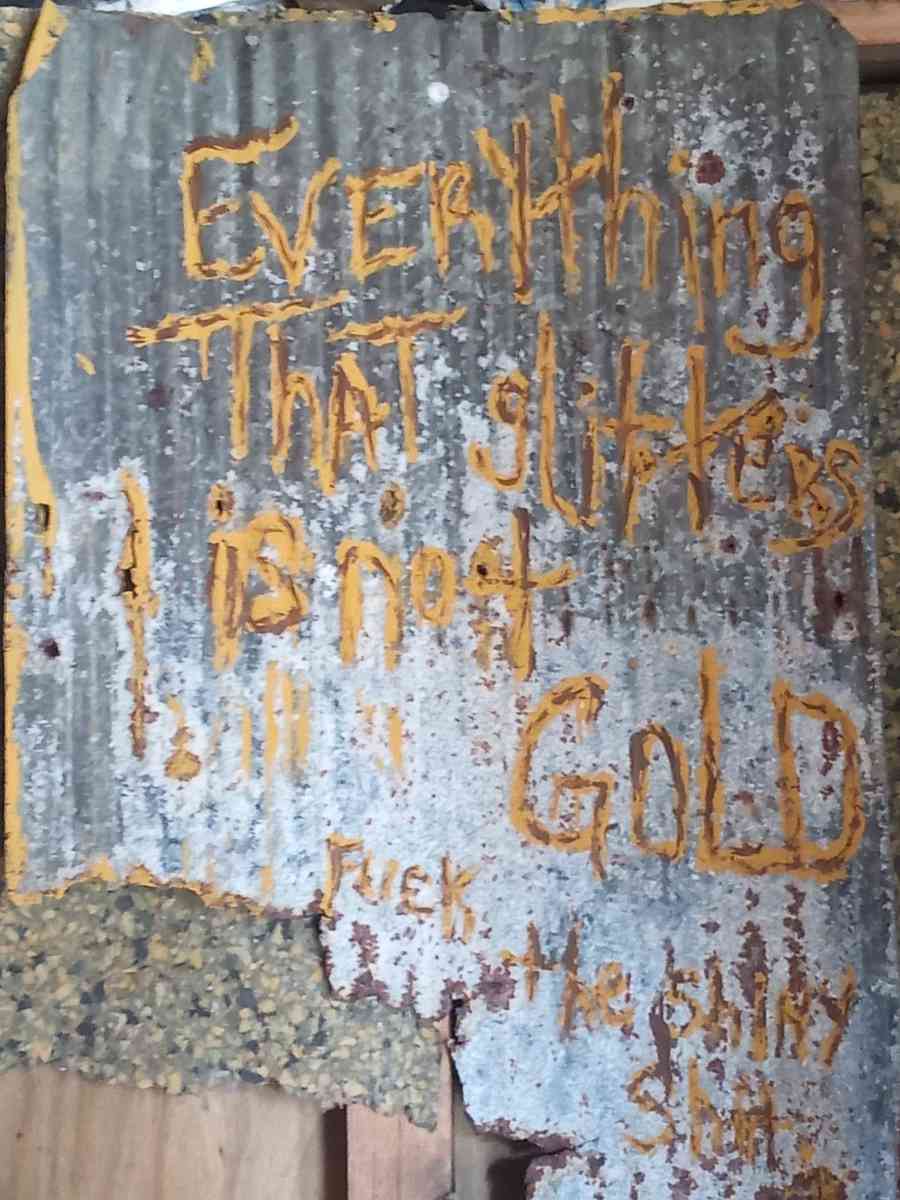 EVERYthing
ThAT glitters
is not
GOLD
FUCK
the shiny
Shit.